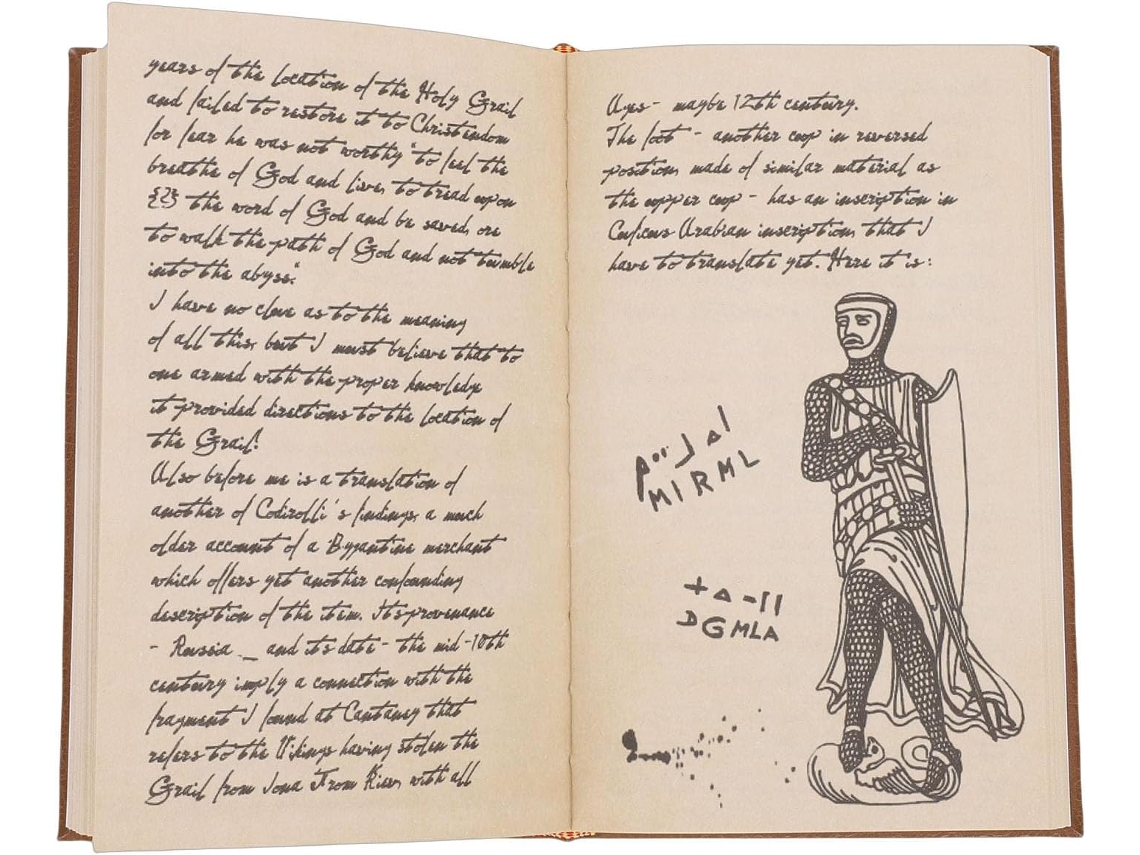 years of the location of the Holy Grail
and failed to restore it to Christendom
for fear he was not worthy "to feel the
breathe of God and live, to tread upon
the word of God and be saved, ore
to walk the path of God and not tumble
into the abyss."
I have no clue as to the meaning
of all this, but I must believe that to
one armed with the proper knowledge
it provided directions to the location of
the Grail!
Also before me is a translation of
another of Codirolli's findings, a much
older account of a Byzantine merchant
which offers yet another confounding
description of the item. Its provenance
- Russia _ and its date - the mid-10th
century imply a connection with the
fragment I found at Cantaney that
refers to the Vikings having stolen the
Grail from Iona From Kiev, with all
Ages - maybe 12th century.
The foot - another cup in reversed
position, made of similar material as
the copper cup - has an inscription in
Cuficus Arabian inscription, that I
have to translate yet. Here it is:
MIRML
DGMLA